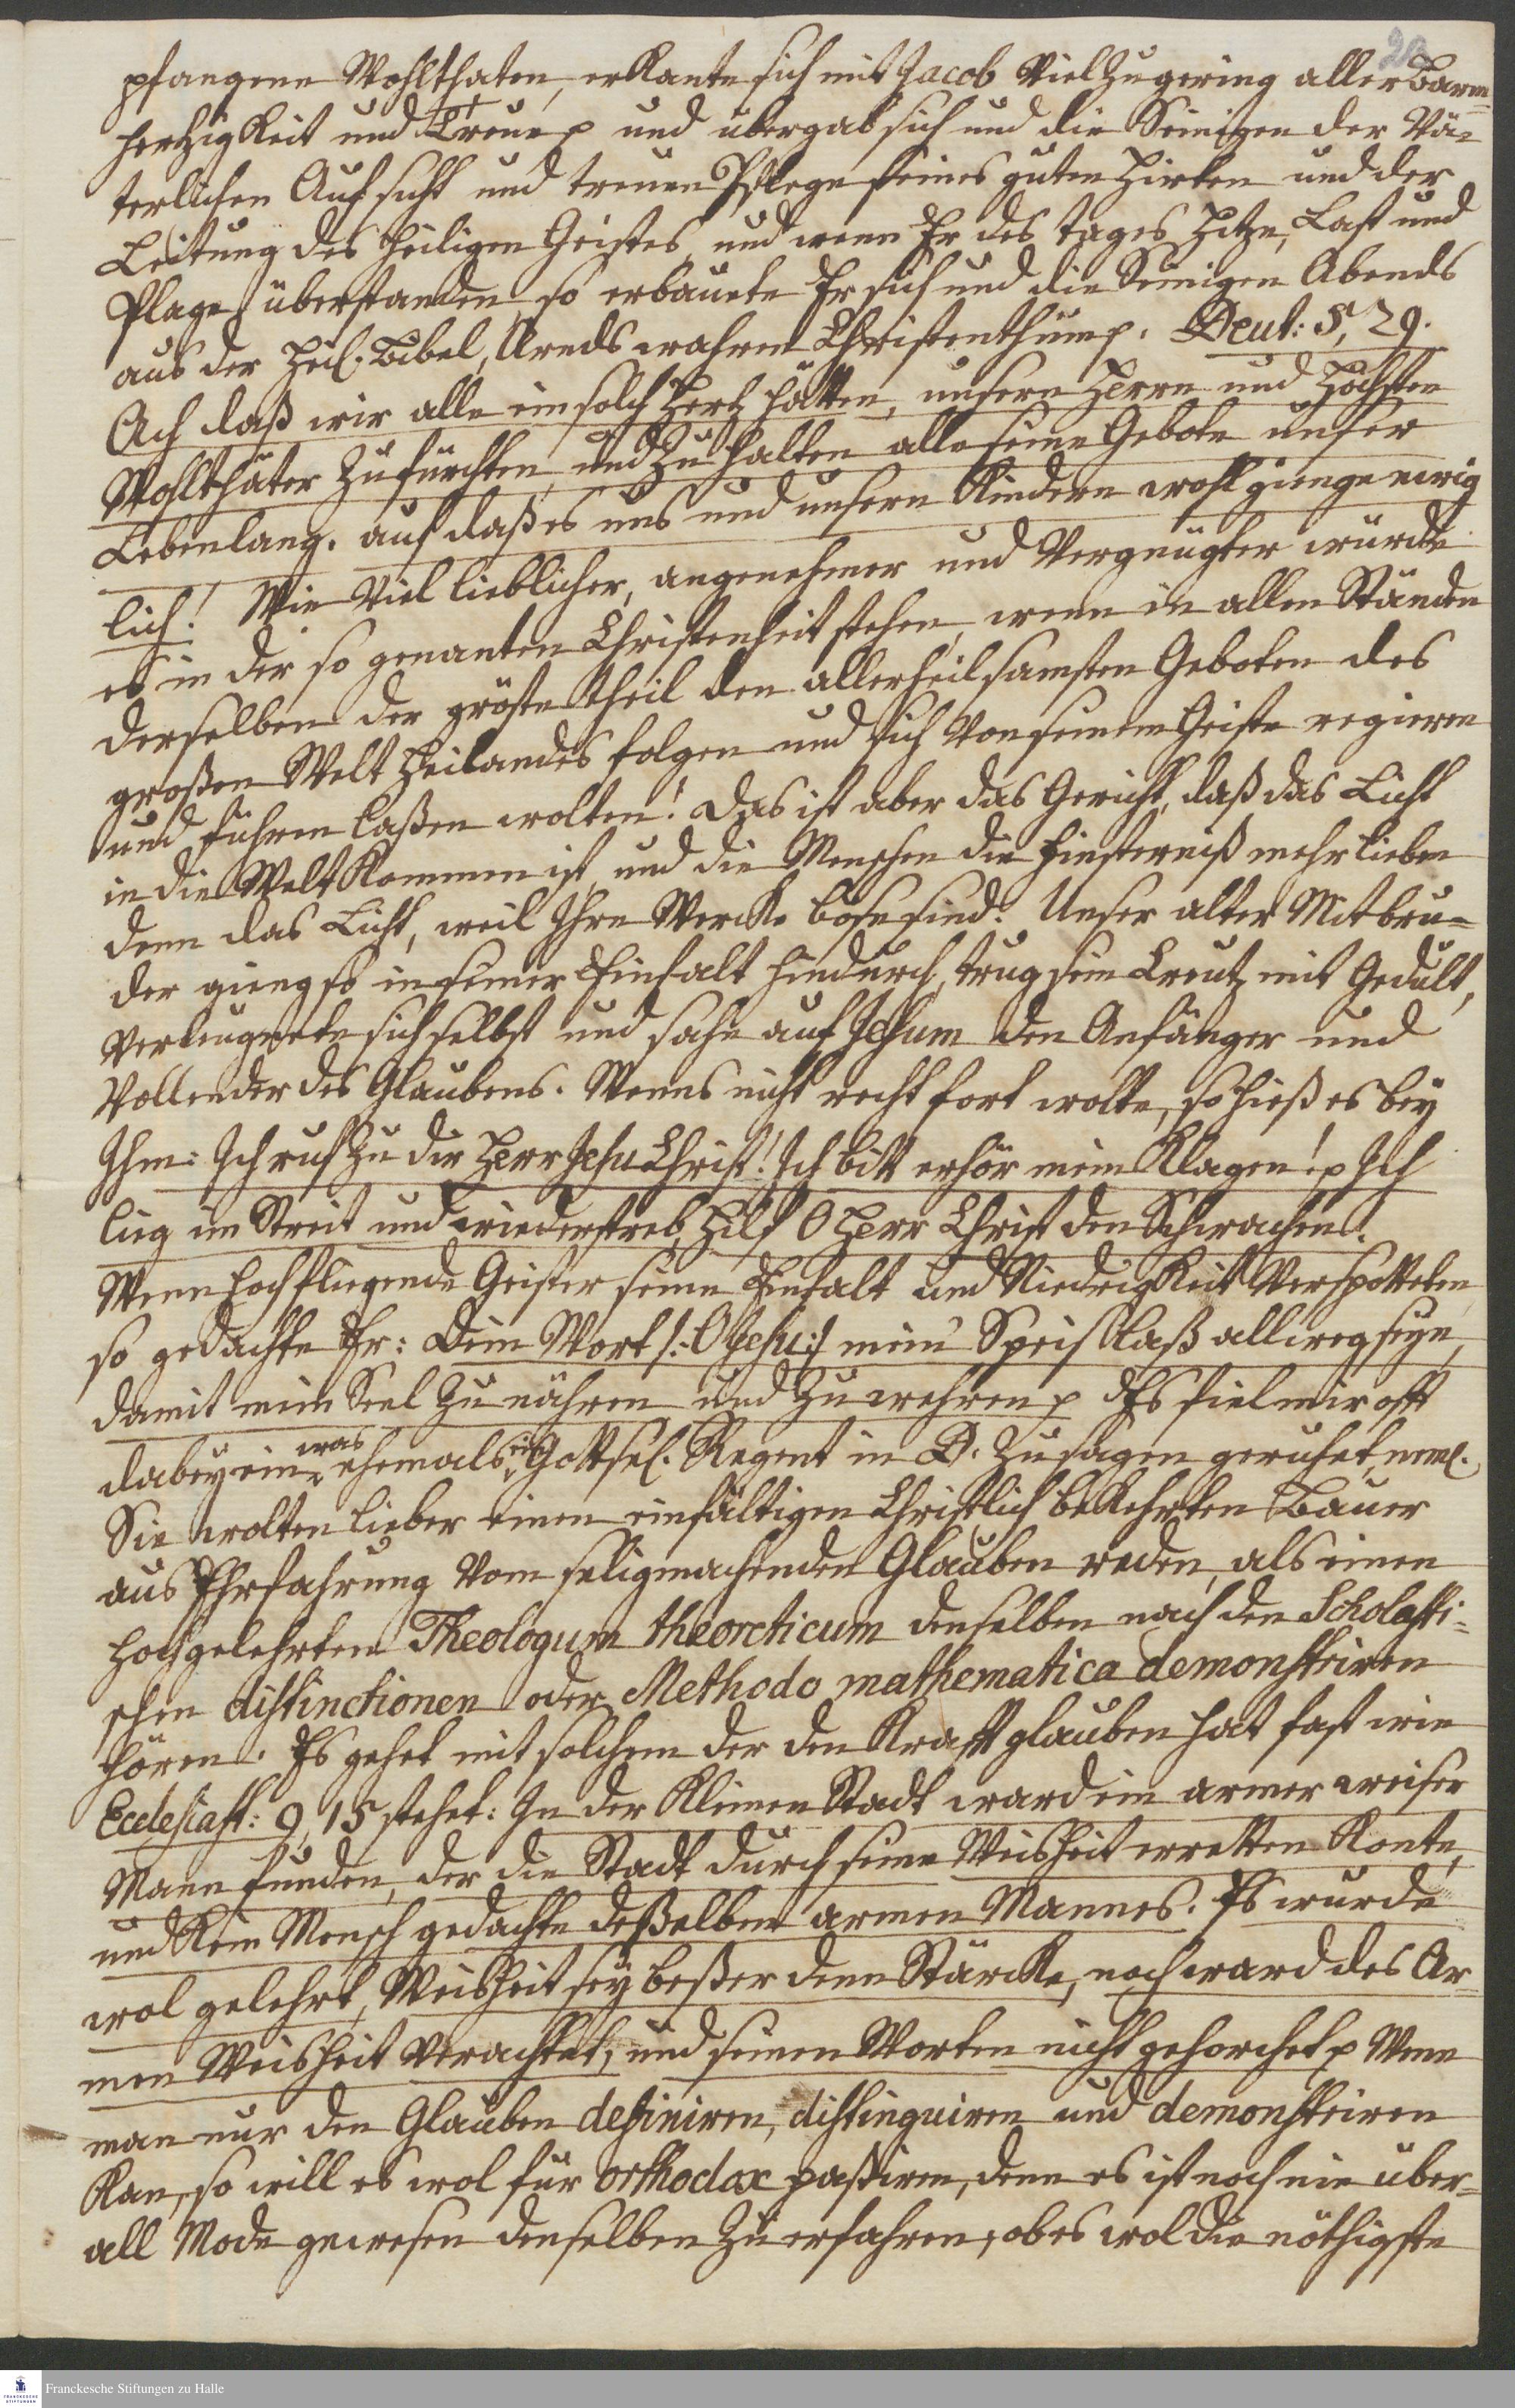 pfangene Wohlthaten, erkante sich mit Jacob viel zu gering aller Barm-
hertzigkeit und Treue p und übergab sich und die Seinigen der Vä-
terlichen Aufsicht und treuen Pflege seines guten Hirten und der
Leitung des heiligen Geistes, und wenn Er des tages Hitze, Last und
Plage überstanden, so erbauete Er sich und die Seinigen Abends
aus der Heil. Bibel, Arnds wahrem Christenthum p. Deut: 5, 29.
Ach daß wir alle ein solch Hertz hätten, unsern Herrn und höchsten
Wohlthäter zu fürchten, und zu halten alle seine Gebote unser
Lebenlang, auf daß es uns und unsern Kindern wohl gienge ewig
lich! Wie viel lieblicher, angenehmer und vergnügter würde
es in der so genanten Christenheit stehen, wenn in allen Ständen
derselben der gröste theil den allerheilsamsten Geboten des
großen Welt Heilandes folgen und sich von seinem Geiste regieren
und führen laßen wolten! Das ist aber das Gericht, daß das Licht
in die Welt kommen ist, und die Menschen die Finsterniß mehr lieben
denn das Licht, weil Ihre Wercke böse sind. Unser alter Mitbru-
der gieng so in seiner Einfalt hindurch, trug sein Creutz mit Gedult,
verleugnete sich selbst und sahe auf Jesum den Anfänger und
Vollender des Glaubens. Wenns nicht recht fort wolte, so hieß es bey
Ihm: Ich ruf zu dir Herr Jesu Christ! Ich bitt erhör mein Klagen! p Ich
lieg im Streit und wiederstreb, Hilf O Herr Christ den Schwachen!
Wenn hochfliegende Geister seine Einfalt und Niedrigkeit verspotteten
so gedachte Er: Dein Wort /: O Jesu :/ mein Speis laß allweg seyn,
damit mein Seel zu nähren und zu wehren p Es fiel mir offt
dabey ein, was ehemals ein Gottsel. Regent in D. zu sagen geruhet, neml.
Sie wolten lieber einen einfältigen Christlich bekehrten Bauer
aus Ehrfahrung vom seligmachenden Glauben reden, als einen
hochgelehrten Theologum theoreticum denselben nach den Scholasti-
schen distinctionen oder Methodo mathematica demonstriren
hören. Es gehet mit solchem der den Kraft glauben hat fast wie
Ecclesiast: 9, 15 stehet: In der kleinen Stadt ward ein armer weiser
Mann funden, der die Stadt durch seine Weisheit erretten konte,
und kein Mensch gedachte deßelben armen Mannes. Es wurde
wol gelehrt, Weisheit sey beßer denn Stärcke, noch ward des Ar-
men Weisheit verachtet, und seinen Worten nicht gehorchet p Wenn
man nur den Glauben definiren, distinguiren und demonstriren
kan, so will es wol für orthodox paßiren, denn es ist noch nie über-
all Mode gewesen denselben zu erfahren, obes wol die nöthigste
Franckesche Stiftungen zu Halle